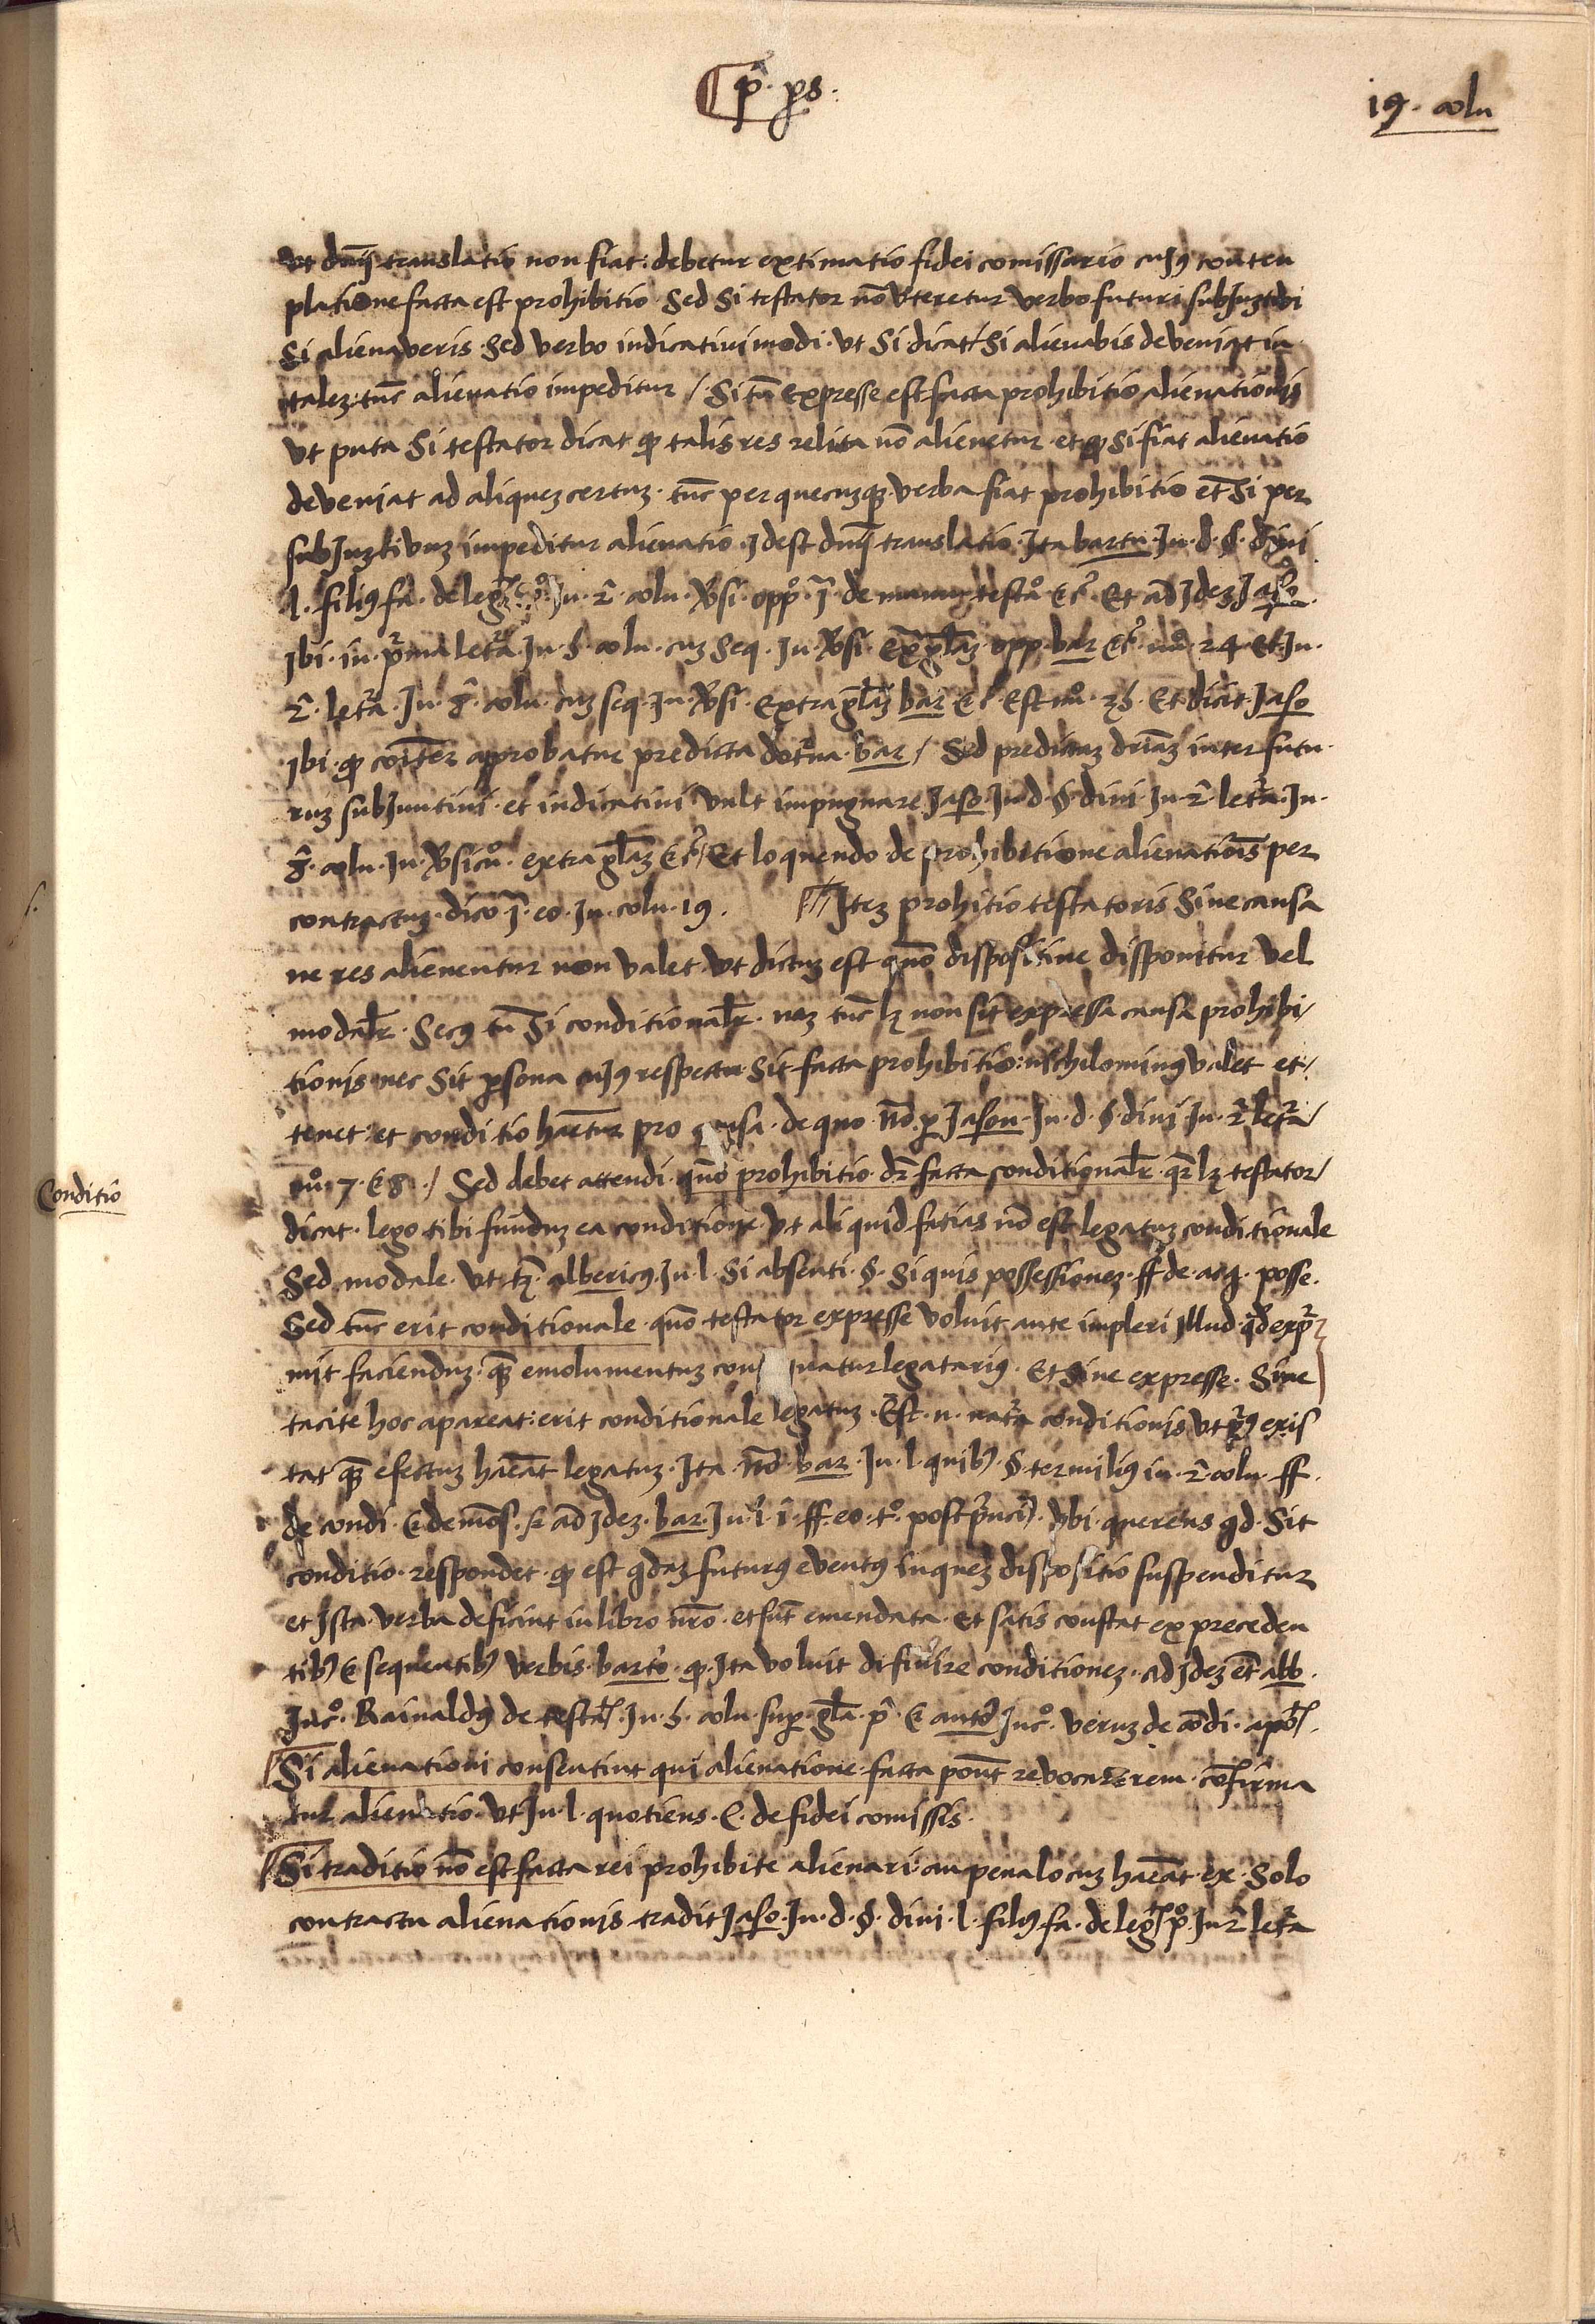 p̂. ps.
19. colu
ut dnij translatio non fiat: debetur extimatio fidei comissario cuJꝰ conten
platione facta est prohibitio Sed Si testator nō Uteretur verbo futuri subJuztivi
Si alienaveris Sed verbo indicativi modi. ut Si dicat Si alienabis deveniat in
talez: tūc alienatio impeditur / Si tn̄ expresse est facta prohibitio alienationis
ut puta Si testator dicat ꝙ talis res relita nō alienetur et ꝙ Si fiat alienatio
deveniat ad aliquez certuz. tūc per quecuzqz verba fiat prohibitio et̄ Si per
subJuztivuz impeditur alienatio Jdest dnij translatio Jta bartu. Jn. d. §. divi
l. filiꝰ fa. de legꝭ Jn. 2̂. colu. v̓si. oppº. J̄. de testº ⁊c̓. Et ad Jdez Jaso.
Jbi. in. pr̓ma letr̓a. Jn. 5. colu. cuz Seq. Jn. v̓si. ex̄ gl̄az opp. bar ⁊c̓. nuº. 24 et Jn.
2̂. letr̓a. Jn. 8̂. colu. cuz seq. Jn. v̓si. extra gl̄az bar ⁊c̓. Est nuº. 35. Et dicit Jaso
Jbi. ꝙ coīter aprobatur predicta doctr̓na bar / Sed predictaz driāz inter futu
ruz subJuntivi et indicativi vult impugnare Jaso. Jn d. §. divi Jn 2̂. letr̓a. Jn.
8̂. colu. Jn. v̓sicuº. extra gl̄az ⁊c̓ / Et loquendo de prohibitione alienatiōis per
contractuz. dico J̄. eo. Jn. colu. 19. Jtez prohitio testatoris Sine causa
ne res alienentur non valet. ut dictuz est qn̄o dispositive disponitur vel
modalr̄. Secꝰ tn̄ Si conditionalr̄. naz tūc lꝫ non sit expressa causa prohibi/
tionis nec Sit psona cuJꝰ respectu Sit facta prohibitio: nichilominꝰ valet et/
tenet: et conditio haētur pro causa. de quo n̄o. p Jason. Jn. d. §. divi Jn. 2̂. letr̓a/
nuº. 7. ⁊ 8. / Sed debet attendi qn̄o prohibitio dr̄ facta conditionalr̄. qr̄ lꝫ testator/
Conditio
dicat. lego tibi funduz ea conditione ut aliquid facias nō est legatuz conditionale
Sed modale. ut tz̄. albericꝰ. Jn. l. Si absenti. §. Si quis possessionez. ff de. acq. posse.
Sed tūc erit conditionale qn̄o testator expresse voluit ante impleri Jllud qd̄ expr̓
mit faciendum. qz̄ emolumentuz con tuatur legatariꝰ. Et Sive expresse. Sive
tacite hoc apareat: erit conditionale legatuz. Est. n. natr̓a conditionis ut prꝰ exis
tat qz̄ efectuz haēat legatuz. Jta n̄o. bar. Jn. l. quibꝰ. §. termiliꝰ in. 2̂. colu. ff.
de condi. ⁊ demōs. ⁊ ad Jdez. bar. Jn. l. 1̂. ff. eo. tº. post pr̓nci. Ubi querens qd. Sit
conditio. respondet. ꝙ est qdaz futurꝰ eventꝰ in quez dispositio suspenditur
et Jsta verba deficiut in libro nr̄o. et sūt emendata. et satis constat ex preceden
tibꝰ ⁊ sequentibꝰ verbis bartº. ꝙ Jta voluit difinire conditionez. ad Jdez et̄ abb.
Jn cº. Rainaldꝰ de testaꝭ. Jn. 5. colu. sup. gl̄a. p̂. ⁊ antº Jn cº. veruz de cōdi. apōꝭ.
Si alienationi consentiut qui alienatione facta poūt revocare rem. cōfirma
tur alienatio. ut Jn. l. quotiens. C. de fidei comissis.
Si traditio nō est facta rei prohibite alienari: an pena locuz haēat ex Solo
contractu alienationis tradit Jaso. Jn. d. §. divi. l. filꝰ fa. de legꝭ pº. Jn 2̂ letr̓a